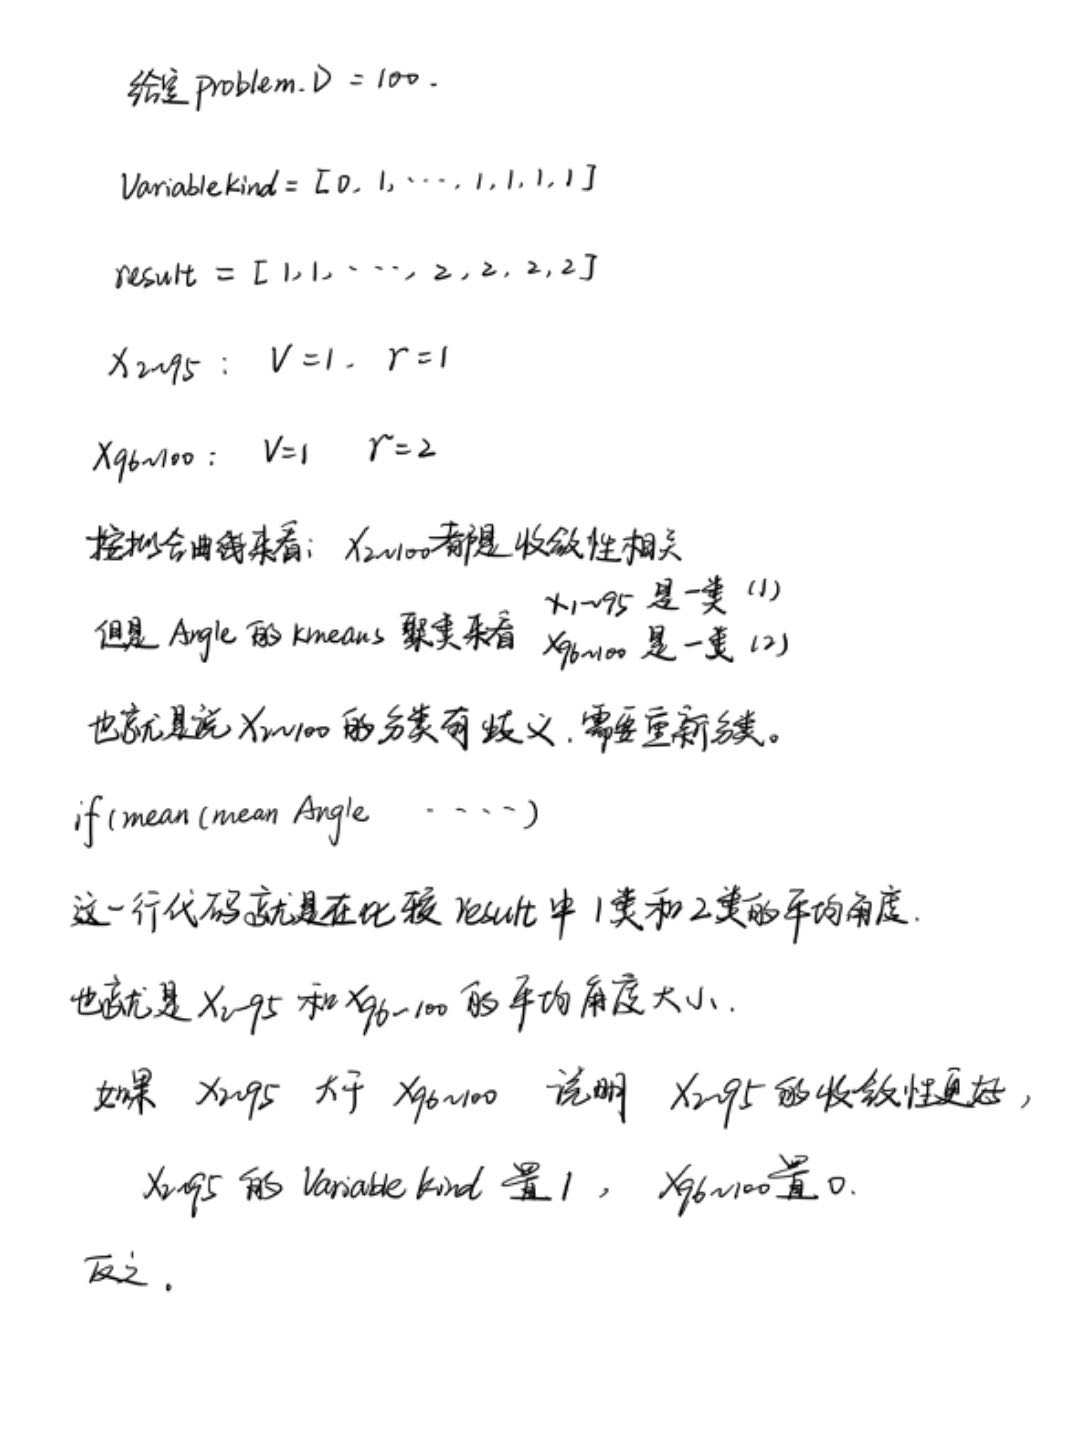 给定 problem.D = 100.
Variablekind = [0, 1, ..., 1, 1, 1, 1]
result = [1, 1, ..., 2, 2, 2, 2]
X2~95: V=1. r=1
X96~100: V=1 r=2
按拟合曲线来看: X2~100都是收敛性相关
但是 Angle 的 kmeans 聚类来看 X1~95 是一类 (1)
X96~100 是一类 (2)
也就是说 X2~100 的分类有歧义, 需要重新分类。
if(mean(mean Angle ....)
这一行代码就是在比较 result 中 1类和2类的平均角度.
也就是 X2~95 和 X96~100 的平均角度大小.
如果 X2~95 大于 X96~100 说明 X2~95 的收敛性更好,
X2~95 的 Variable kind 置1, X96~100置0.
反之。